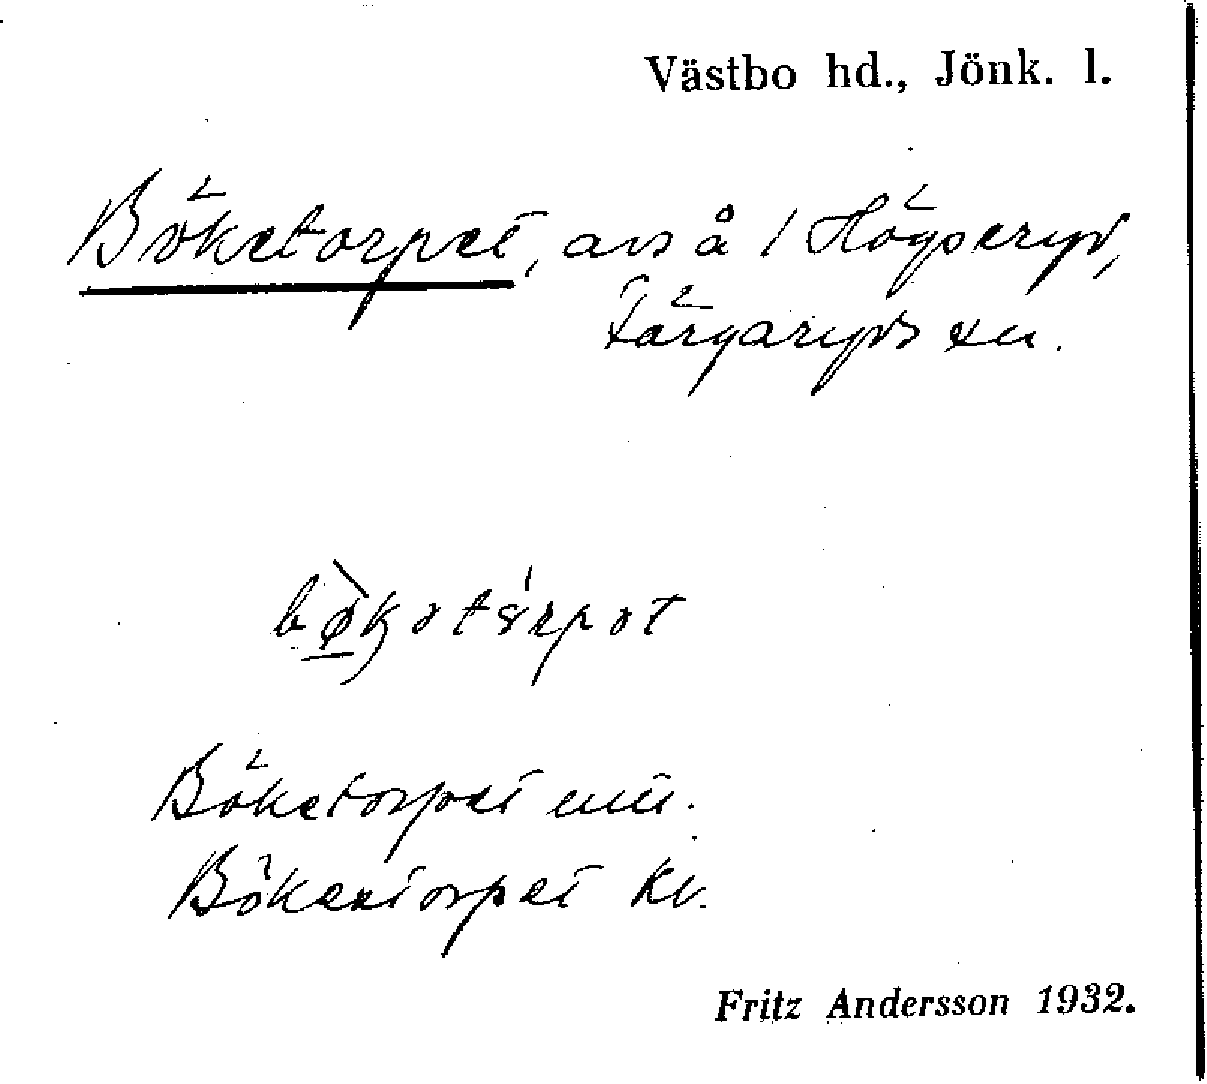 Västbo hd., Jönk. l.
Böketorpet, avs å / Högseryd,
Färgaryds sn.
bø̀kətórpət
Böketorpet mtl.
Bökentorpet kv.
Fritz Andersson 1932.